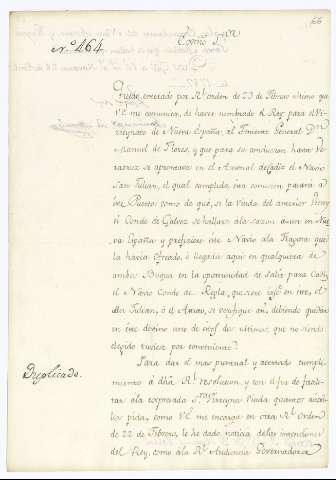 66
N.º 464.
Exmo Sor
Quedo enterado por Rl. orden de 23 de Febrero ultimo que
V.E. me comunica, de haver nombrado el Rey para el Vi-
rreynato de Nueva España, al Teniente General Dn.
Manuel de Flores, y que para su conduccion hasta Ve-
racruz se aprontase en el Arsenal de Cadiz el Navio
San Julian, el qual cumplida esta comision pasara a
este Puerto como de que, si la Viuda del anterior Virrey
Conde de Galvez se hallare ála sazon aun en Nue-
va España y prefiriere este Navio ala Fragata que
la havia ofrecido, ó llegado aqui en qualquiera de
ambos Buques en la oportunidad de salir para Cadiz
el Navio Conde de Regla, que sea en este, el
Sn. Julian, ó el Astuto, se verifique asi, debiendo quedar
en este destino uno de los ultimos, que no siendo
elegido tuviese por conveniente.
Duplicado.
Para dar el mas puntual y acertado cumpli-
miento á dha Rl. resolucion, y con el fin de facili-
tar ala expresada Sra. Virreyna Viuda quantos auxi-
lios pida, como V.E. me encarga en otra Rl. Orden
de 22 de Febrero, le he dado noticia delas intenciones
del Rey, como ála Rl. Audiencia Governadora